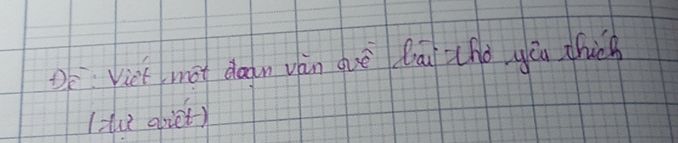 Đề: Viết một đoạn văn quê bài thơ yêu thích
(tự viết)